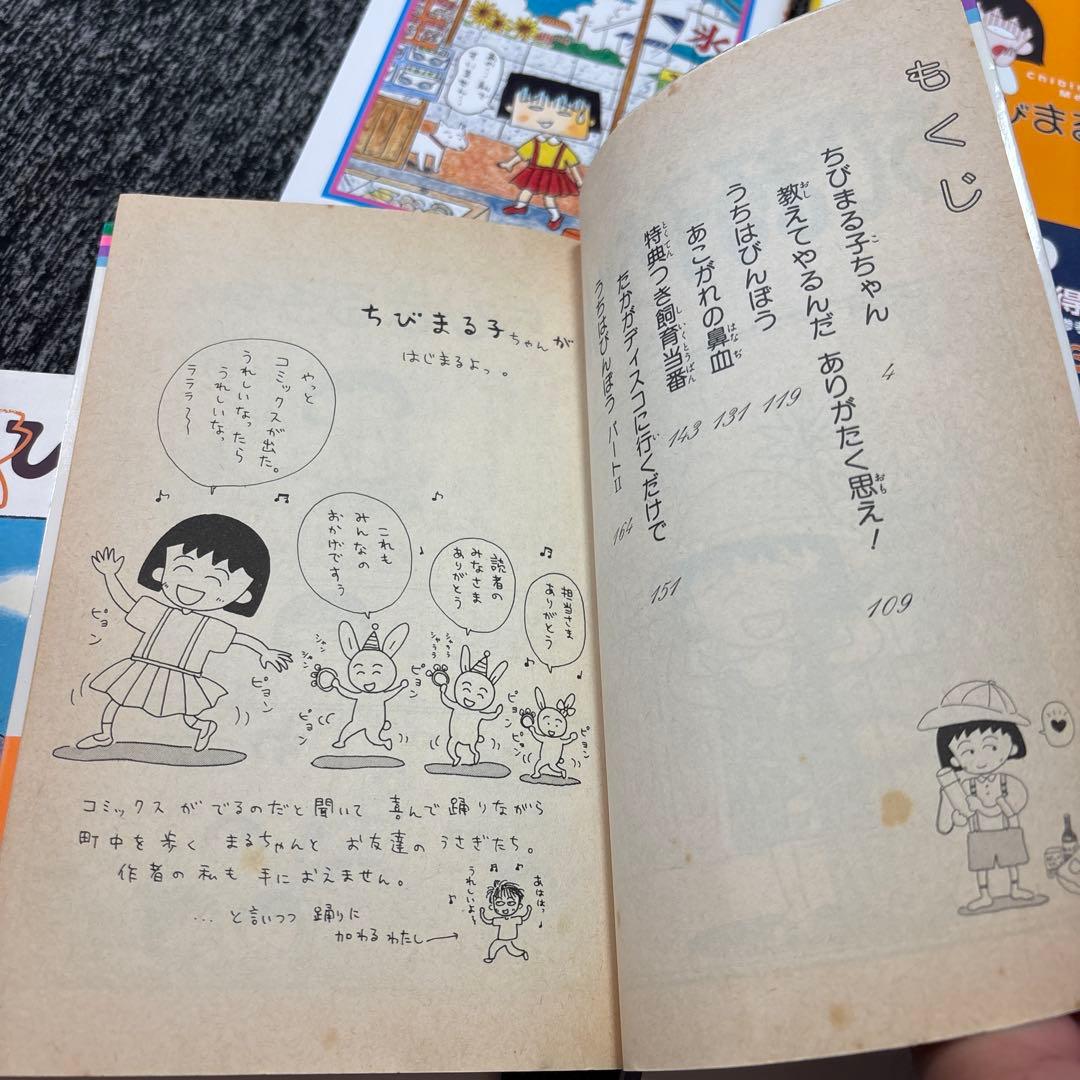 もくじ
ちびまる子ちゃん 4
教えてやるんだ ありがたく思え! 109
うちはびんぼう 119
あこがれの鼻血 131
特典つき飼育当番 143
たかがディスコに行くだけで 151
うちはびんぼう パートII 164
ちびまる子ちゃんが
はじまるよっ。
やっと
コミックスが出た。
うれしいなったら
うれしいなっ
ラララ〜
これも
みんなの
おかげですう
読者の
みなさま
ありがとう
担当さま
ありがとう
ピョン
ピョン
シャン
シャン
ピョン
ピョン
シャララ
シャララ
ピョン
ピョン
ピョン
ピョン
コミックスがでるのだと聞いて 喜んで踊りながら
町中を歩く まるちゃんと お友達のうさぎたち。
作者の私も 手におえません。
…と言いつつ 踊りに
加わるわたし→
うれしいよう
あははっ
氷
得